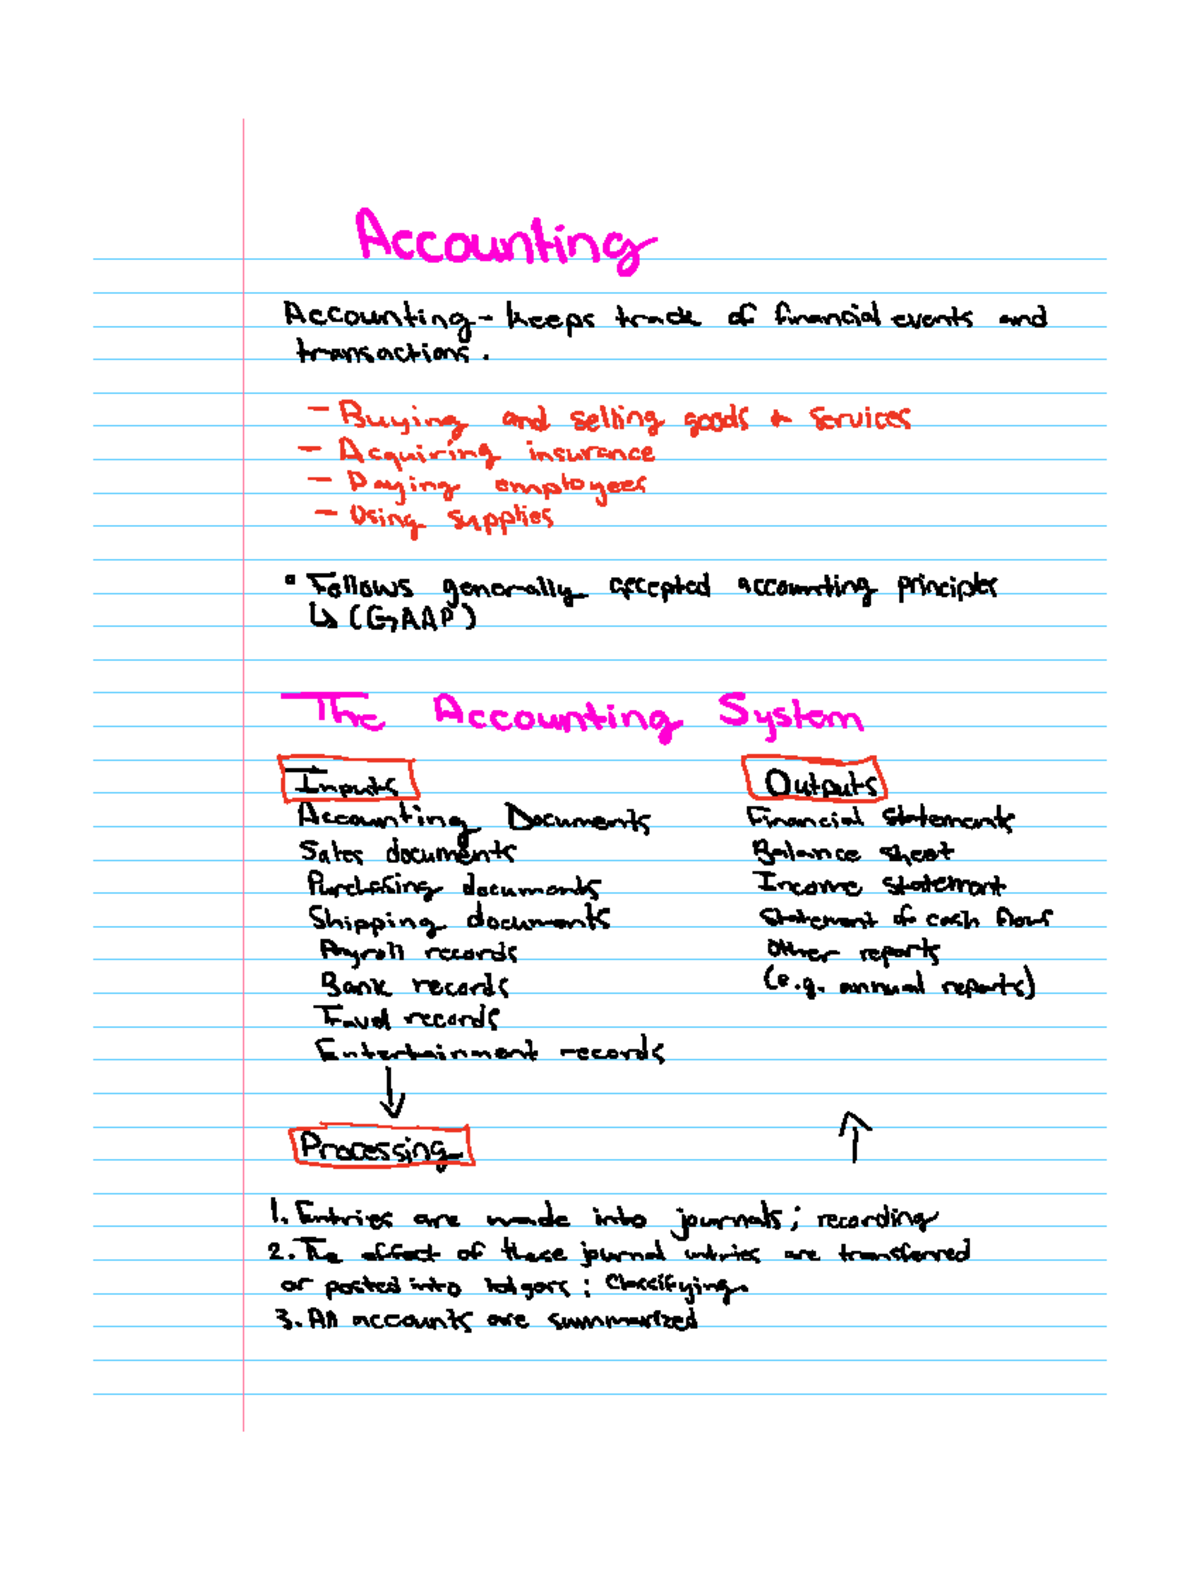 Accounting
Accounting - keeps track of financial events and
transactions.
- Buying and selling goods + services
- Acquiring insurance
- Paying employees
- Using supplies
• Follows generally accepted accounting principles
↳ (GAAP)
The Accounting System
Inputs
Accounting Documents
Sales documents
Purchasing documents
Shipping documents
Payroll records
Bank records
Travel records
Entertainment records
↓
Outputs
Financial statements
Balance sheet
Income statement
Statement of cash flows
Other reports
(e.g. annual reports)
↑
Processing
1. Entries are made into journals; recording
2. The effect of these journal entries are transferred
or posted into ledgers: Classifying.
3. All accounts are summarized